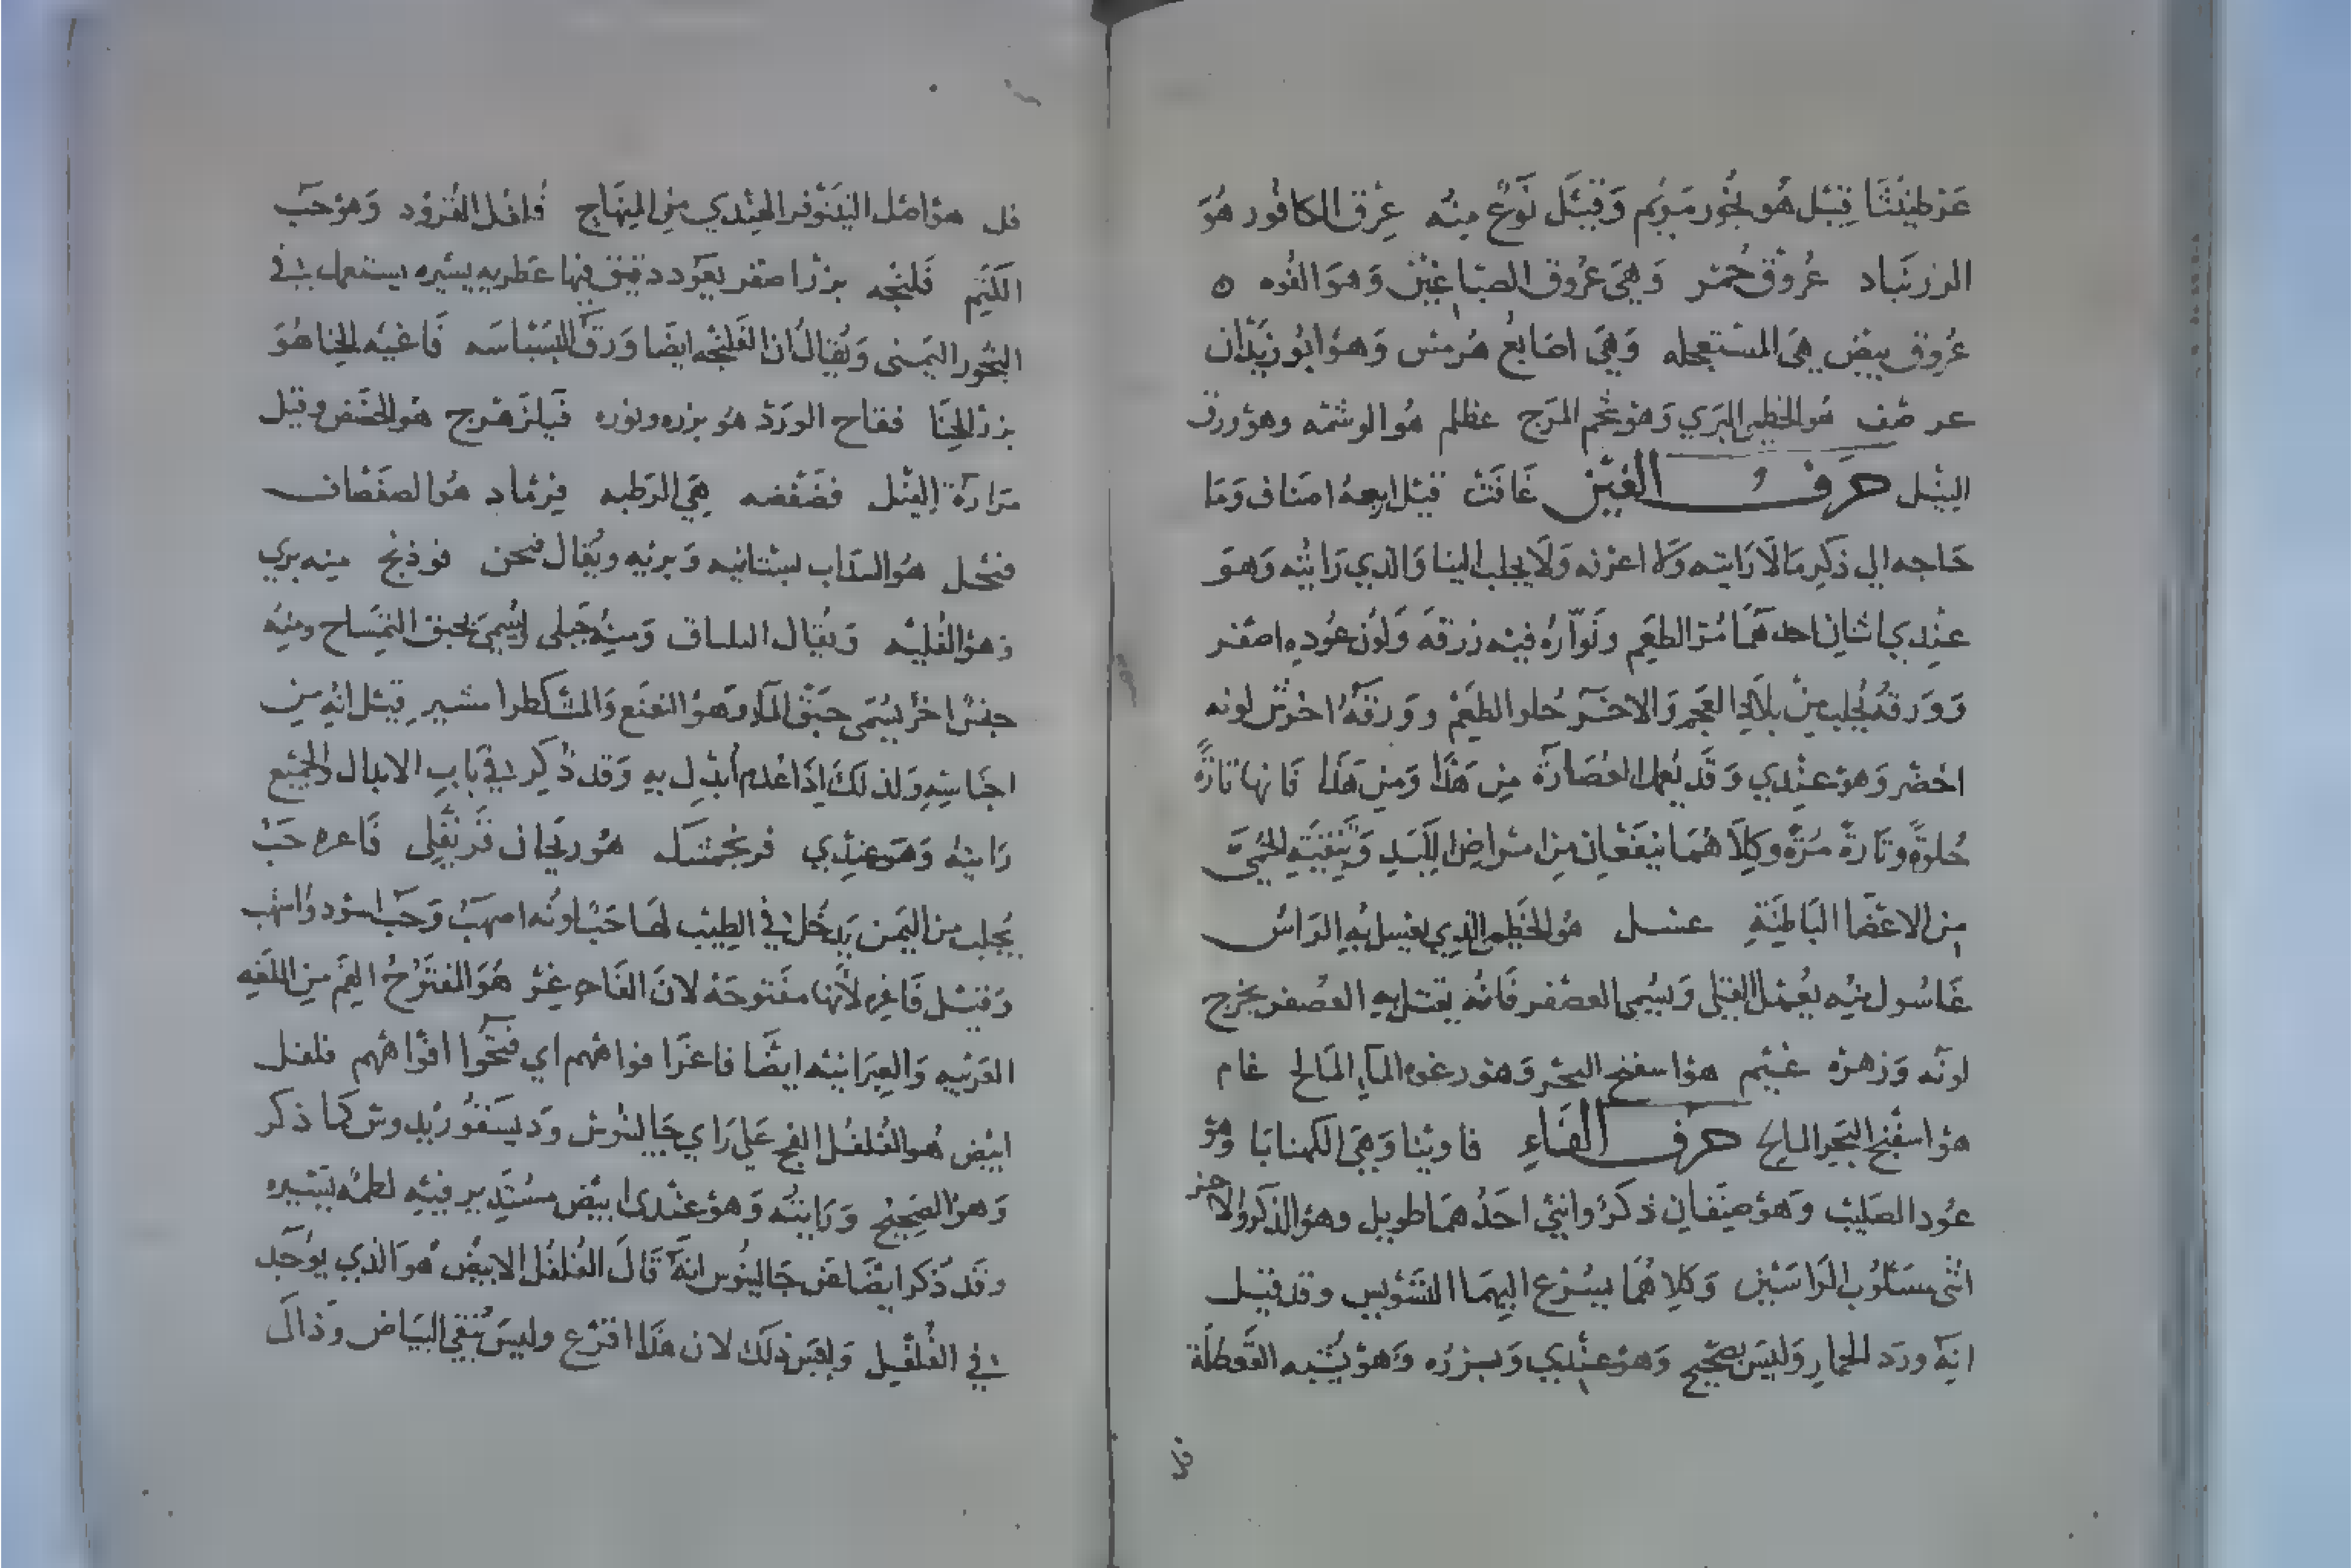 عرطنيثا قيل هو بخور مريم وقيل نوع منه عرق الكافور هو
الزرنباد عروق حمر وهي عروق الصباغين وهو الفوه ه
عروق بيض هي المستعجله وهي اصابع هرمس وهو ابو زيدان
عرصف هو الخطمي البري وهو شحم المرج عظلم هو الوشمه وهو ورق
النيل حرف الغين غافث قيل اربعة اصناف وما
حاجه الي ذكر ما لا رايته ولا اعرفه ولا يجلب الينا والذي رايته وهو
عندي اثنان احدهما مر الطعم ونواره فيه زرقه ولون عوده اصفر
وورقه يجلب من بلاد العجم والاخر حلو الطعم وورقه اخرش لونه
اخضر وهو عندي وقد يعمل العصارة من هذا ومن هذا فانها تارة
حلوة وتارة مرة وكلاهما ينفعان من امراض الكبد وتنقية الحمي
من الاعضا الباطنة غسل هو الخطمي الذي يغسل به الراس
غاسول منه يعمل القلي ويسمى العصفر فانه يقتل به العصفر يخرج
لونه وزهره غيم هو اسفنج البحر وهو رغوه الماء المالح غام
هو اسفنج البحر المالح حرف الفاء فاوينا وهي الكهنايا وهو
عود الصليب وهو صنفان ذكر وانثي احدهما طويل وهو الذكر والاخر
انثى مسلوب الراسين وكلاهما يسرع اليهما التسويس وقد قيل
انه ورد الحمار وليس بصحيح وهو عندي وبزره وهو يشبه القعطلة
فل
فل هو اصل النيلوفر الهندي من المنهاج فلفل القرود وهو حب
الكتم فلنجه بزر اصفر بعود دقيق فيها عطريه يسيره يستعمل في
البخور اليمني ويقال ان الفلنجه ايضا ورق البسباسه فاغيه الحنا هو
بزر الحنا فقاح الورد هو بزره ونوره فيلزهرج هو الحضض وقيل
مرارة الفيل فصفصه هي الرطبه فرماد هو الصفصاف
فيجل هو السداب بستانيه وبريه ويقال فيجن فوذنج منه بري
وهو الفليه ويقال البلساق ومنه جبلي يسمى بحبق التمساح ومنه
جنس اخر يسمى حبق الماء وهو النعنع والمشكطرا مشير قيل انه من
اجناسه ولذلك اذا عدم ابدل به وقد ذكر في باب الابدال والجميع
رايته وهو عندي فرنجمشك هو ريحان قرنفلي فاعره حب
يجلب من اليمن يدخل في الطيب لها حب لونه اصهب وحب اسود واشهب
وقيل فاغره لانها مفتوحه لان الفاغر هو المفتوح الفم من اللغه
العربيه والعبرانيه ايضا فاغرا فواههم اي فتحوا افواههم فلفل
ابيض هو الفلفل الفج علي راي جالينوس وديسقوريدوس كما ذكر
وهو الصحيح ورايته وهو عندي ابيض مستدير فيه لطئه يسيره
وقد ذكر ايضا عن جالينوس انه قال الفلفل الابيض هو الذي يوجد
في الفلفل ولعمر ذلك لان هذا اقرع وليس بنقي البياض وذاك